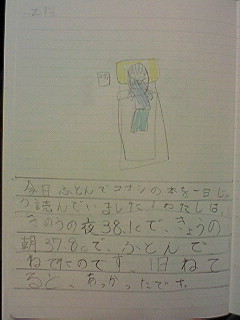 今日ふとんでコナンの本を一日じゅ
う読んでいました!わたしは
きのうの夜38.1℃で、きょうの
朝37.8℃で、ふとんで
ねてたのです。1日ねて
ると、あつかったです。